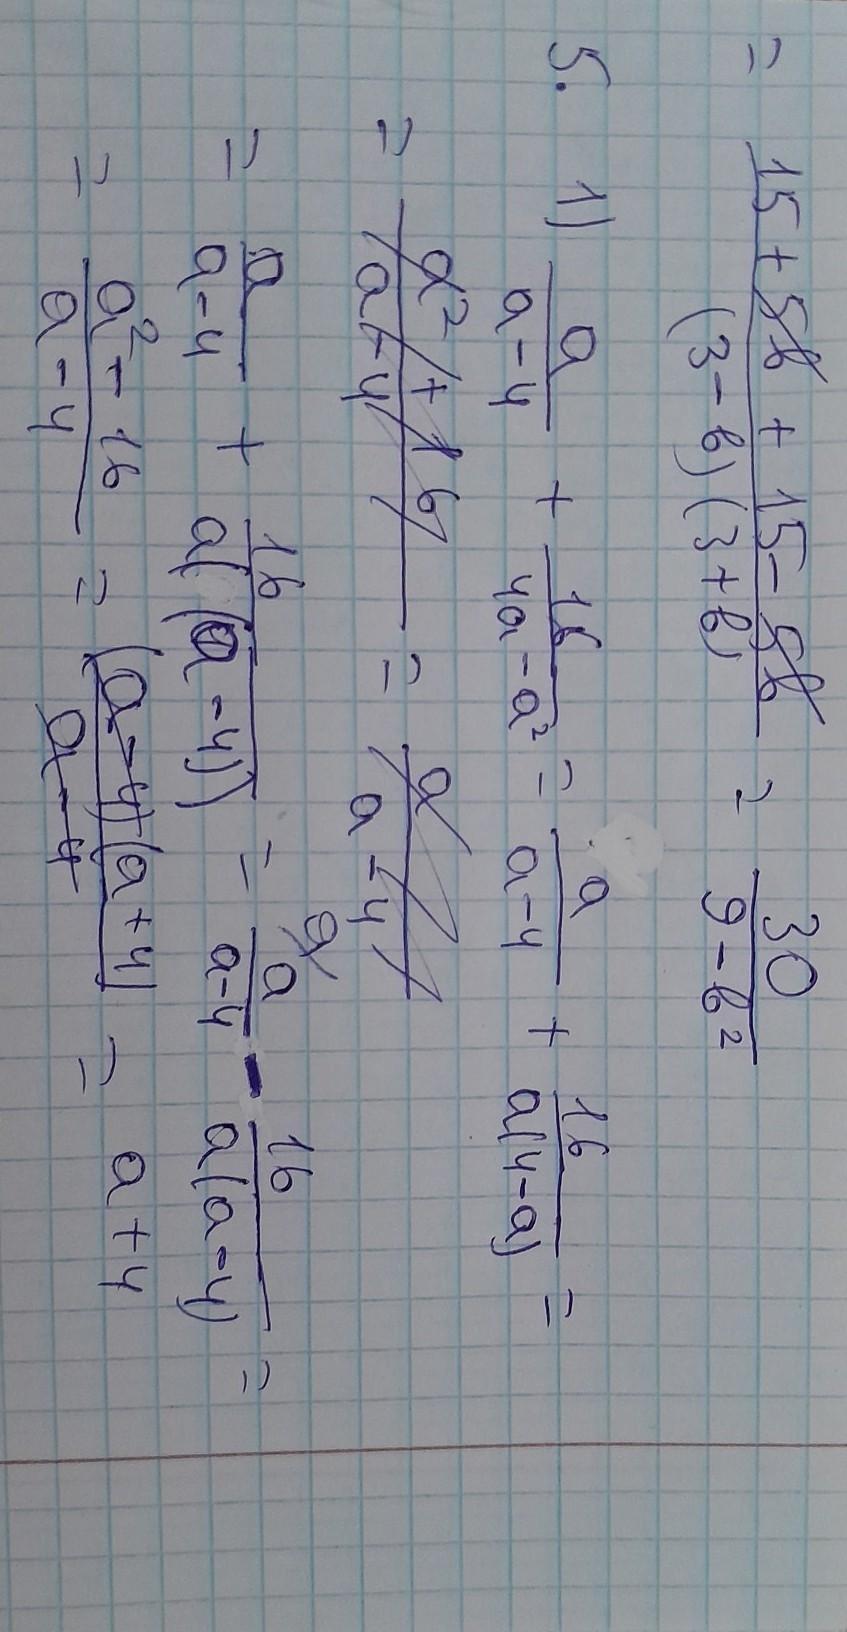 = (15 + 5b + 15 - 5b)/((3 - b)(3 + b)) = 30/(9 - b²)
5. 1) a/(a - 4) + 16/(4a - a²) = a/(a - 4) + 16/(a(4 - a)) =
= (a² + 16)/(a - 4) = a/(a - 4)
= a/(a - 4) + 16/(a((a - 4)) = a/(a - 4) - 16/(a(a - 4)) =
= (a² - 16)/(a - 4) = ((a - 4)(a + 4))/(a - 4) = a + 4